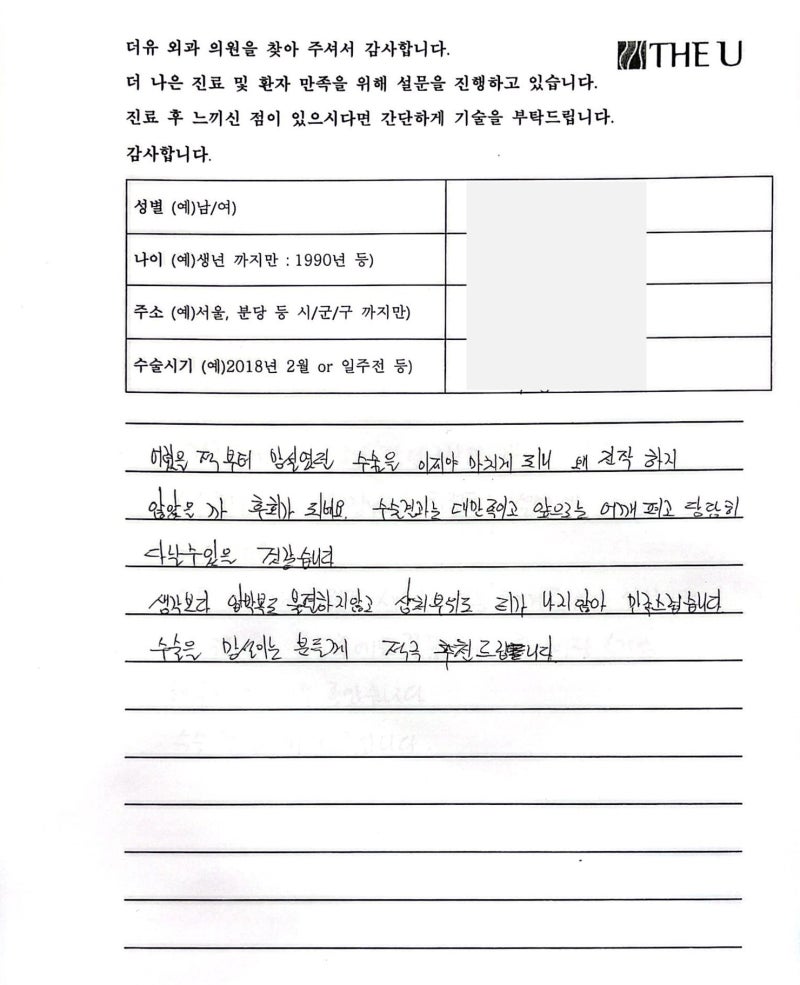 더유 외과 의원을 찾아 주셔서 감사합니다.
THE U
더 나은 진료 및 환자 만족을 위해 설문을 진행하고 있습니다.
진료 후 느끼신 점이 있으시다면 간단하게 기술을 부탁드립니다.
감사합니다.
성별 (예)남/여)
나이 (예)생년 까지만 : 1990년 등)
주소 (예)서울, 분당 등 시/군/구 까지만)
수술시기 (예)2018년 2월 or 일주전 등)
어렸을 적부터 망설였던 수술을 이제야 마치게 되니 왜 진작 하지
않았을까 후회가 되네요. 수술결과는 대만족이고 앞으로는 어깨 펴고 당당히
다닐수있을 것같습니다
생각보다 압박복도 불편하지않고 상처부위도 티가 나지않아 만족스럽습니다
수술을 망설이는 분들께 적극 추천드립니다.